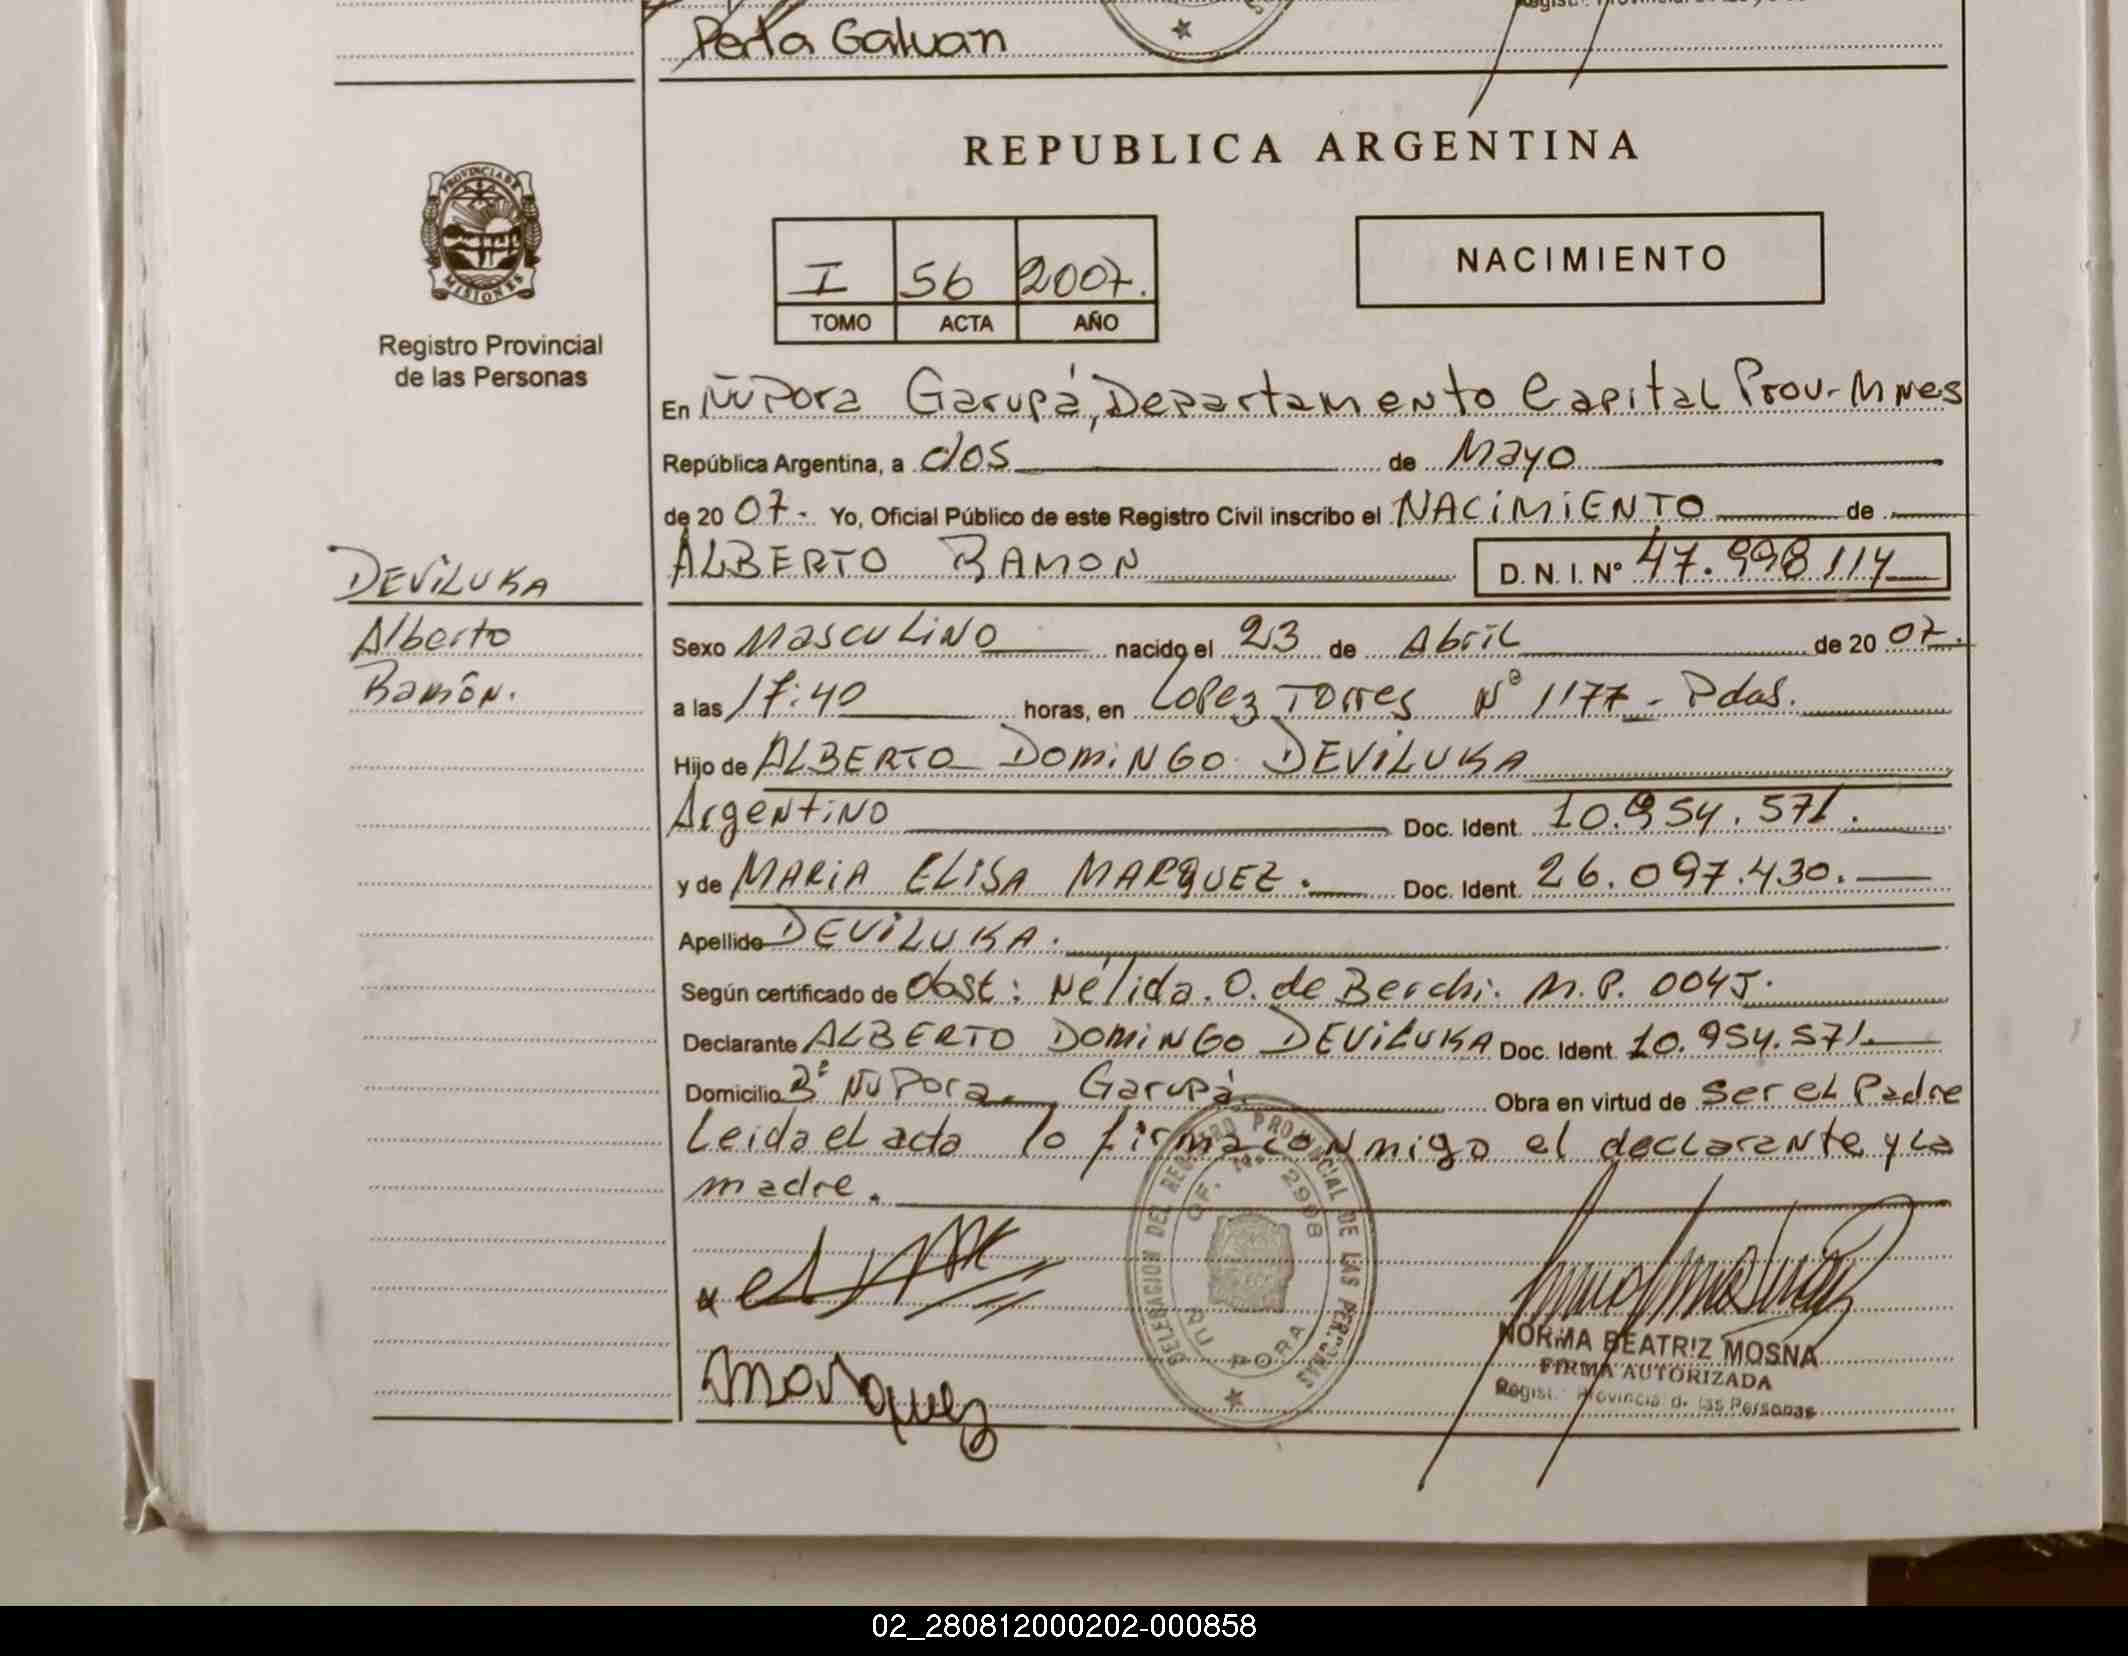 Perla Galvan
REPUBLICA ARGENTINA
PROVINCIA DE
MISIONES
Registro Provincial
de las Personas
I 56 2007.
TOMO ACTA AÑO
NACIMIENTO
En Ñu Pora Garupá, Departamento Capital Prov-Mnes
República Argentina, a dos de Mayo
de 20 07- Yo, Oficial Público de este Registro Civil inscribo el NACIMIENTO de
ALBERTO RAMON D. N. I. Nº 47.998114
DEVILUKA
Alberto
Ramón.
Sexo Masculino nacido el 23 de Abril de 20 07.
a las 17:40 horas, en Lopez Torres Nº 1177 - Pdas.
Hijo de ALBERTO DOMINGO DEVILUKA
Argentino Doc. Ident. 10.954.571.
y de MARIA ELISA MARQUEZ. Doc. Ident. 26.097.430.
Apellido DEVILUKA.
Según certificado de Obst: Nélida. O. de Berchi. M.P. 0045.
Declarante ALBERTO DOMINGO DEVILUKA Doc. Ident. 10.954.571.
Domicilio Bº Ñu Pora - Garupá. Obra en virtud de ser el Padre
Leida el acta lo firma conmigo el declarante y la
madre.
DELEGACION DEL REGISTRO PROVINCIAL DE LAS PERSONAS
OF. Nº 2908
ÑU PORA
Marquez
NORMA BEATRIZ MOSNA
FIRMA AUTORIZADA
Regist. Provincial d. las Personas
02_280812000202-000858